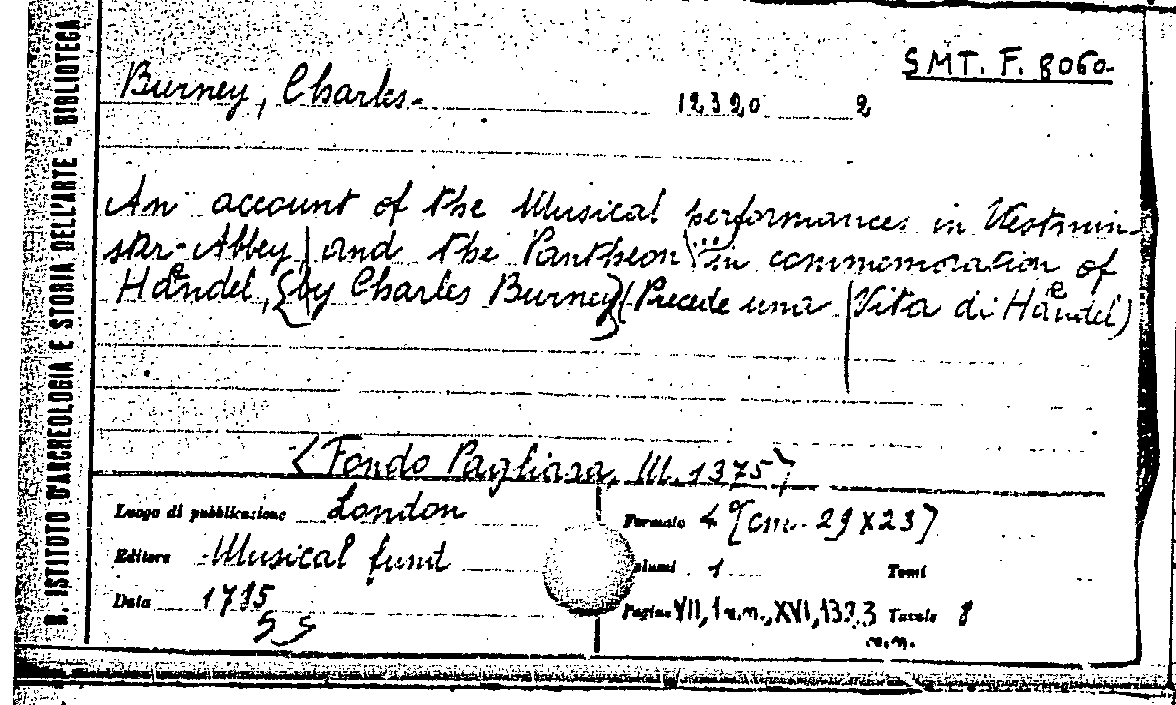 R. ISTITUTO D'ARCHEOLOGIA E STORIA DELL'ARTE - BIBLIOTECA
SMT. F. 8060-
Burney, Charles- 12320 2
An account of the Musical performances in Westmin-
ster-Abbey | and the Pantheon | ... in commemoration of
Haendel, [by Charles Burney] (Precede una | Vita di Haendel)
[Fondo Pagliara, III. 1375]
Luogo di pubblicazione London
Formato 4° [cm. 29x23]
Editore Musical fund
Volumi 1 Tomi
Data 1785
Pagine VII, 1 n.n., XVI, Tavole 8
n.n.